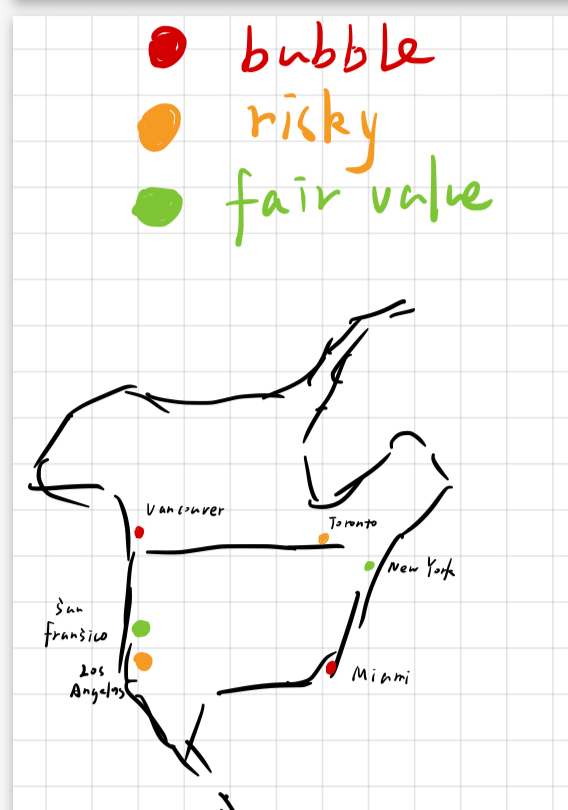 bubble
risky
fair value
Vancouver
Toronto
New York
San
fransico
Los
Angelos
Miami